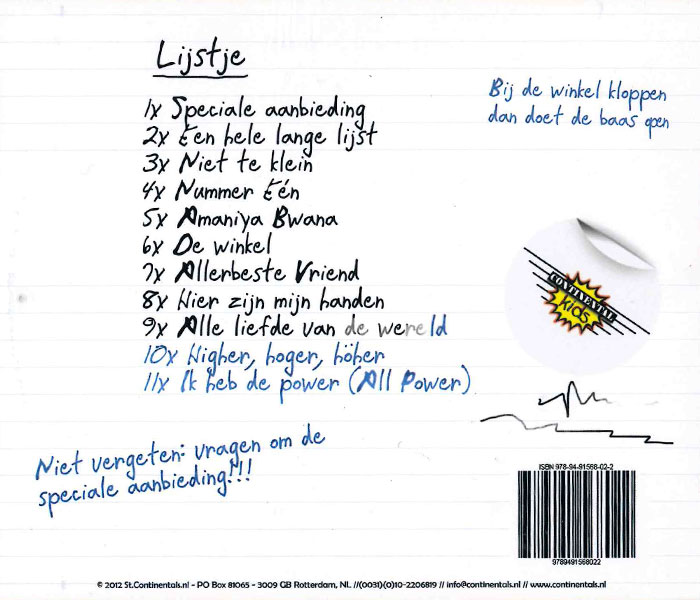 Lijstje
1x Speciale aanbieding
2x Een hele lange lijst
3x Niet te klein
4x Nummer Eén
5x Amaniya Bwana
6x De winkel
7x Allerbeste Vriend
8x Hier zijn mijn handen
9x Alle liefde van de wereld
10x Higher, hoger, höher
11x Ik heb de power (All Power)
Bij de winkel kloppen
dan doet de baas open
CONTINENTAL
kids
Niet vergeten: vragen om de
speciale aanbieding!!!
ISBN 978-94-91568-02-2
9789491568022
© 2012 St.Continentals.nl - PO Box 81065 - 3009 GB Rotterdam, NL //(0031)(0)10-2206819 // info@continentals.nl // www.continentals.nl